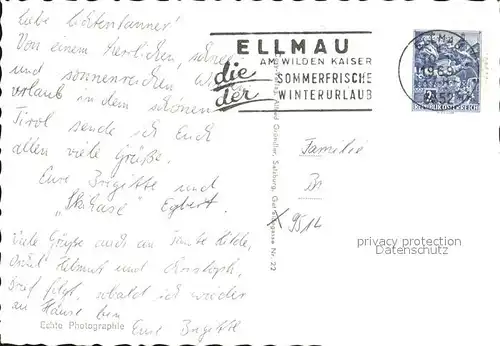 Liebe Lichtentanner!
Von einem herrlichen, schnee
und sonnenreichen
urlaub in dem schönen
Tirol sende ich Euch
allen viele Grüße.
Eure Brigitte und
Egbert.
Viele Grüße auch an Tante Hilde,
Onkel Helmut und Christoph,
Brief folgt, sobald ich wieder
zu Hause bin
Eure Brigitte
Echte Photographie
ELLMAU
AM WILDEN KAISER
die SOMMERFRISCHE
der WINTERURLAUB
Alfred Gründler, Salzburg, Nr. 22
Familie
Br
9512
privacy protection
Datenschutz